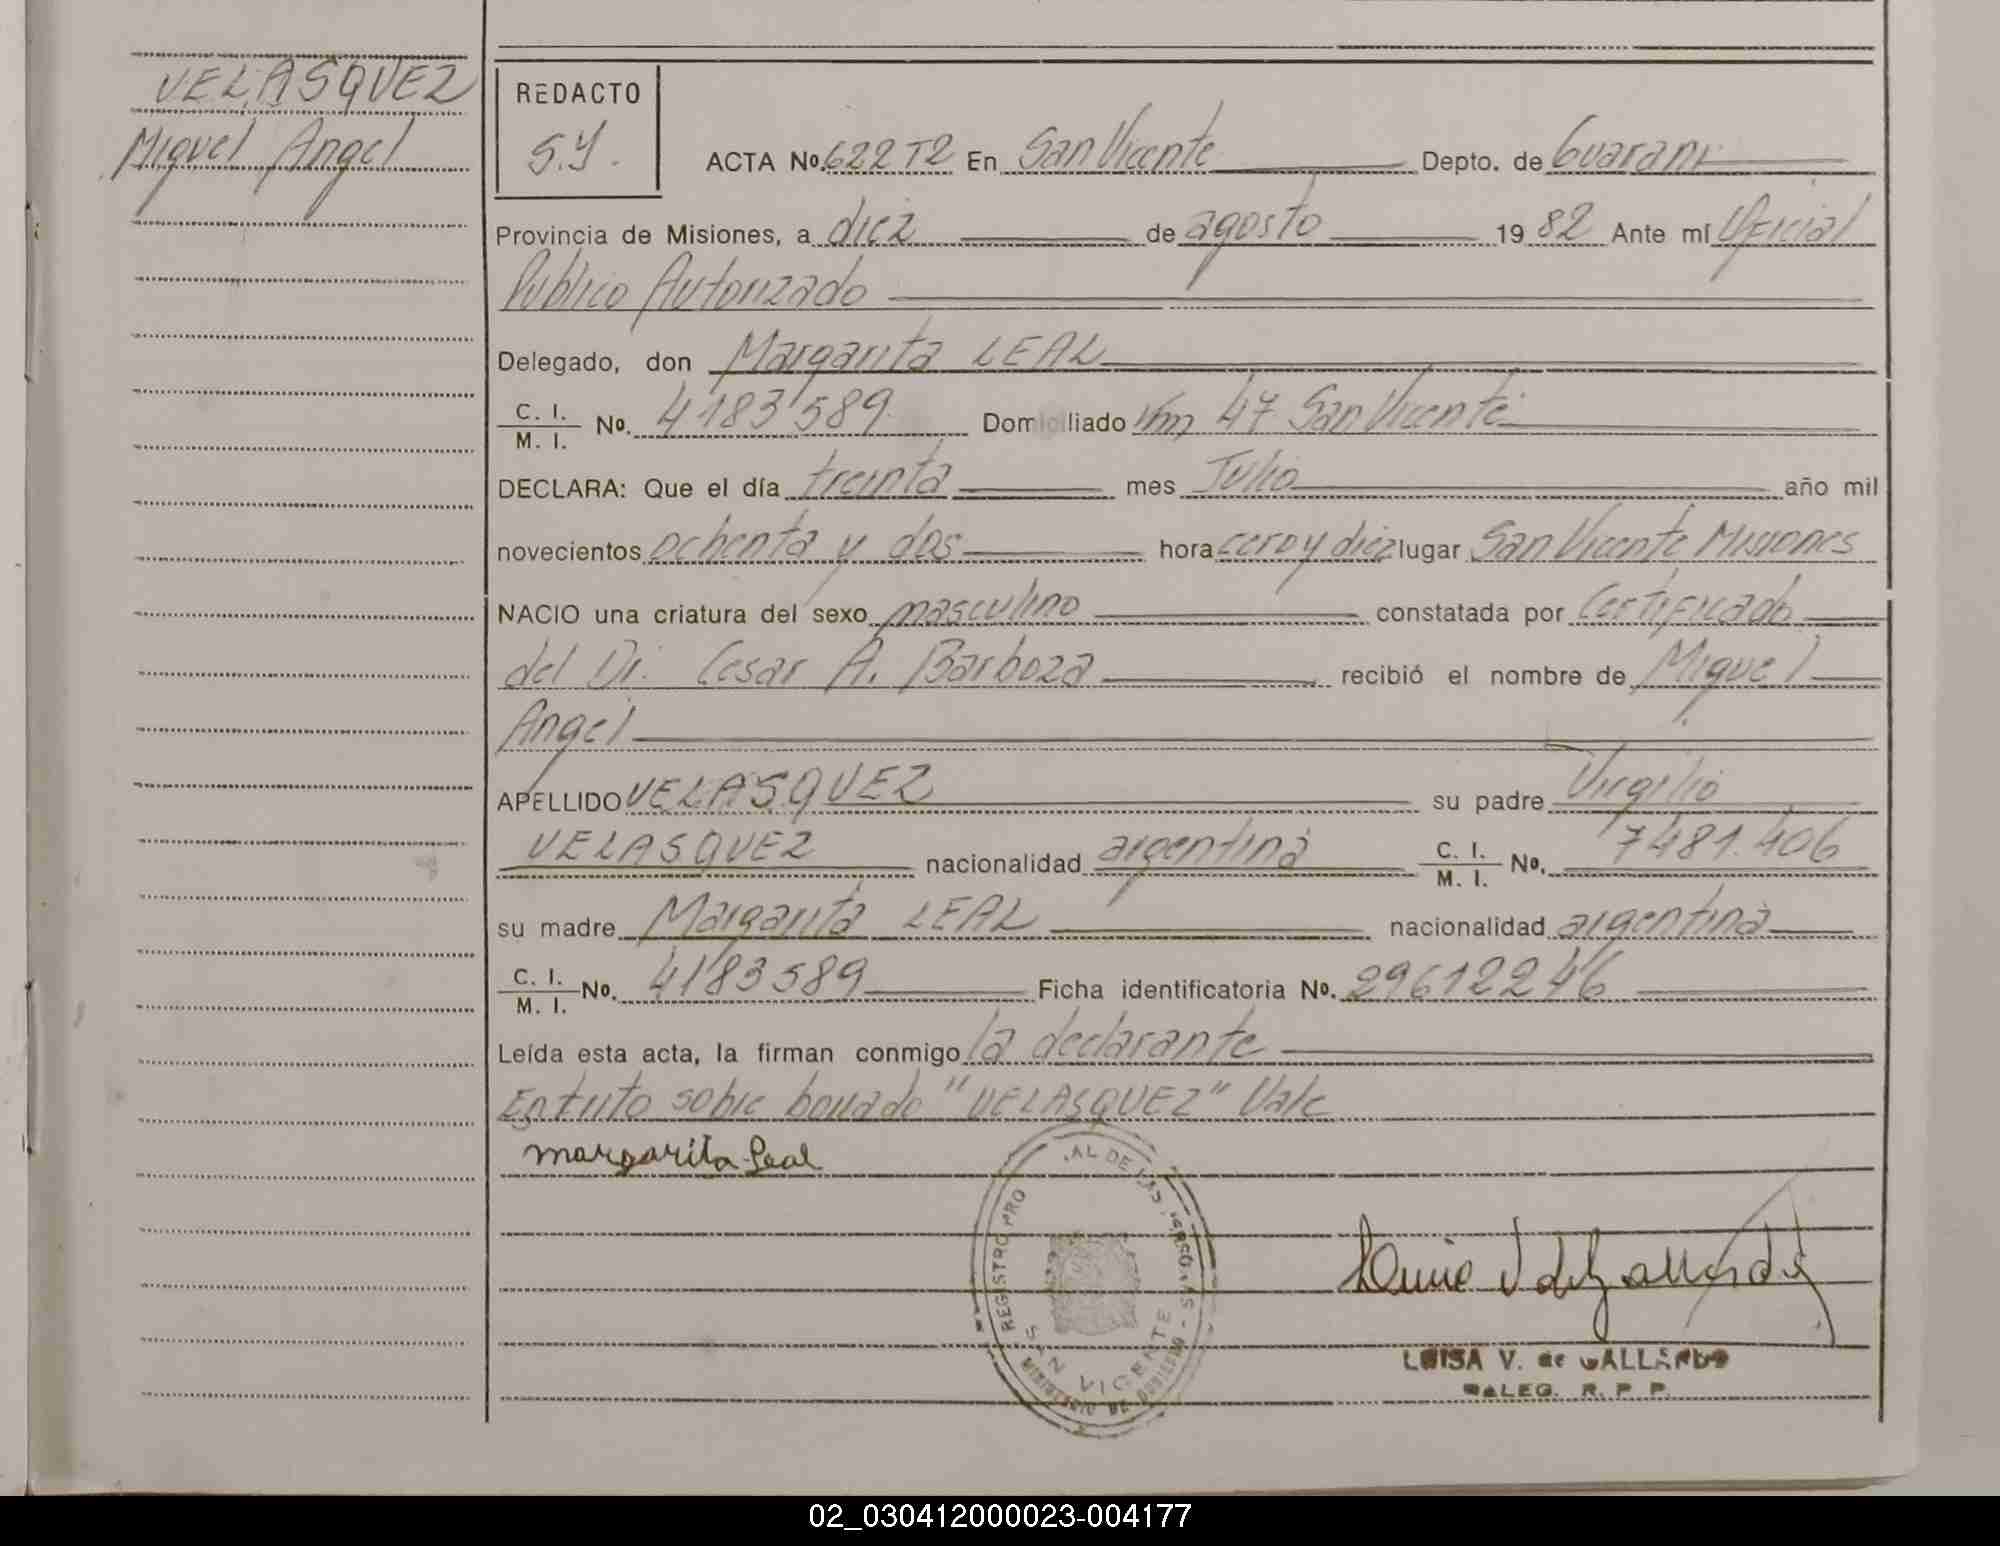 VELASQUEZ
Miguel Angel
REDACTO
S.Y.
ACTA No. 622 T2 En San Vicente Depto. de Guarani
Provincia de Misiones, a diez de agosto 1982 Ante mí Oficial
Publico Autorizado
Delegado, don Margarita LEAL
C. I. / M. I. No. 4183589 Domiciliado Km 47 San Vicente
DECLARA: Que el día treinta mes Julio año mil
novecientos ochenta y dos hora cero y diez lugar San Vicente Misiones
NACIO una criatura del sexo masculino constatada por Certificado
del Dr. Cesar A. Barboza recibió el nombre de Miguel
Angel
APELLIDO VELASQUEZ su padre Virgilio
VELASQUEZ nacionalidad argentina C. I. / M. I. No. 7481.406
su madre Margarita LEAL nacionalidad argentina
C. I. / M. I. No. 4183589 Ficha identificatoria No. 29612246
Leída esta acta, la firman conmigo la declarante
Entrito sobre borrado "VELASQUEZ" Vale
margarita Leal
REGISTRO PRO AL DE LAS PERSONAS - MINISTERIO DE GOBIERNO
SAN VICENTE
Luisa V de Gallardo
LUISA V. de GALLARDO
DALEG. R. P. P.
02_030412000023-004177